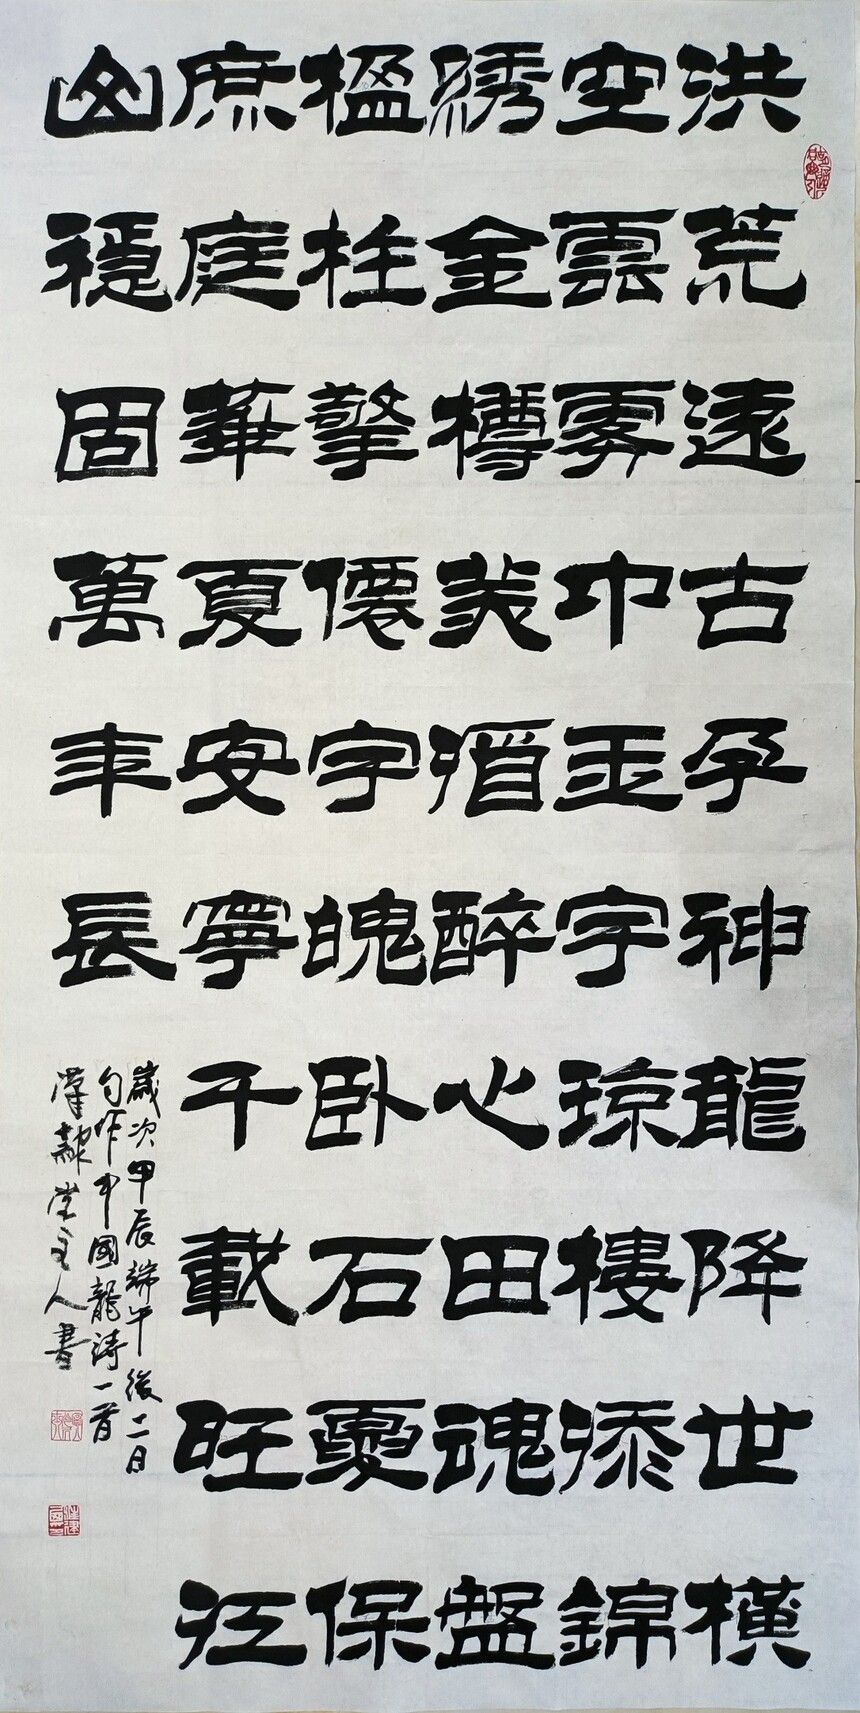 洪荒遠古孕神龍降世橫
空雲霧巾玉宇瓊樓添錦
綉金樽美酒醉心田魂盤
楹柱擎僊字魄卧石夏保
庶庭華夏安寧千載旺江
山穩固萬年長
歲次甲辰端午後二日
句作中國龍詩一首
漢隸堂主人書